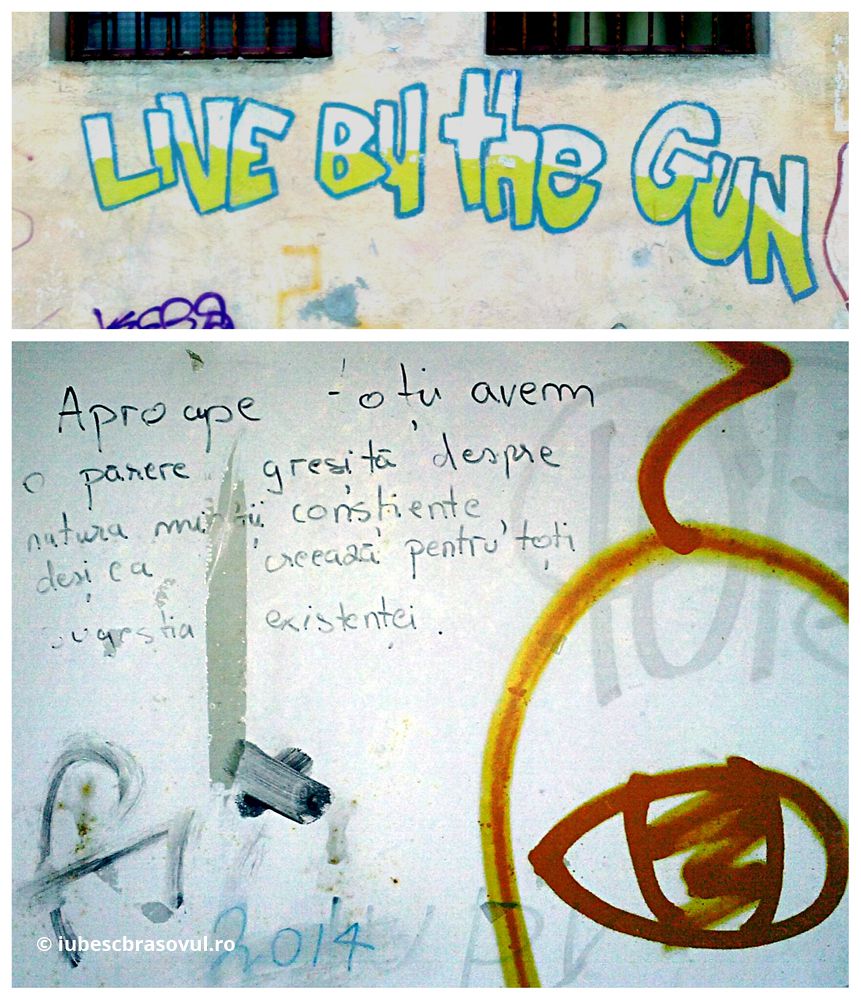 LIVE BY the GUN
Aproape toți avem
o părere greșită despre
natura minții conștiente
deși ea creează pentru toți
sugestia existenței.
2014
© iubescbrasovul.ro